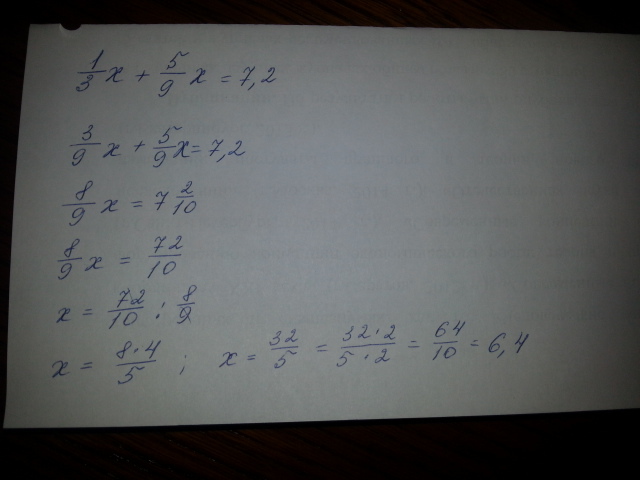 1/3 x + 5/9 x = 7,2
3/9 x + 5/9 x = 7,2
8/9 x = 7 2/10
8/9 x = 72/10
x = 72/10 : 8/9
x = 8·4/5 ; x = 32/5 = 32·2/5·2 = 64/10 = 6,4